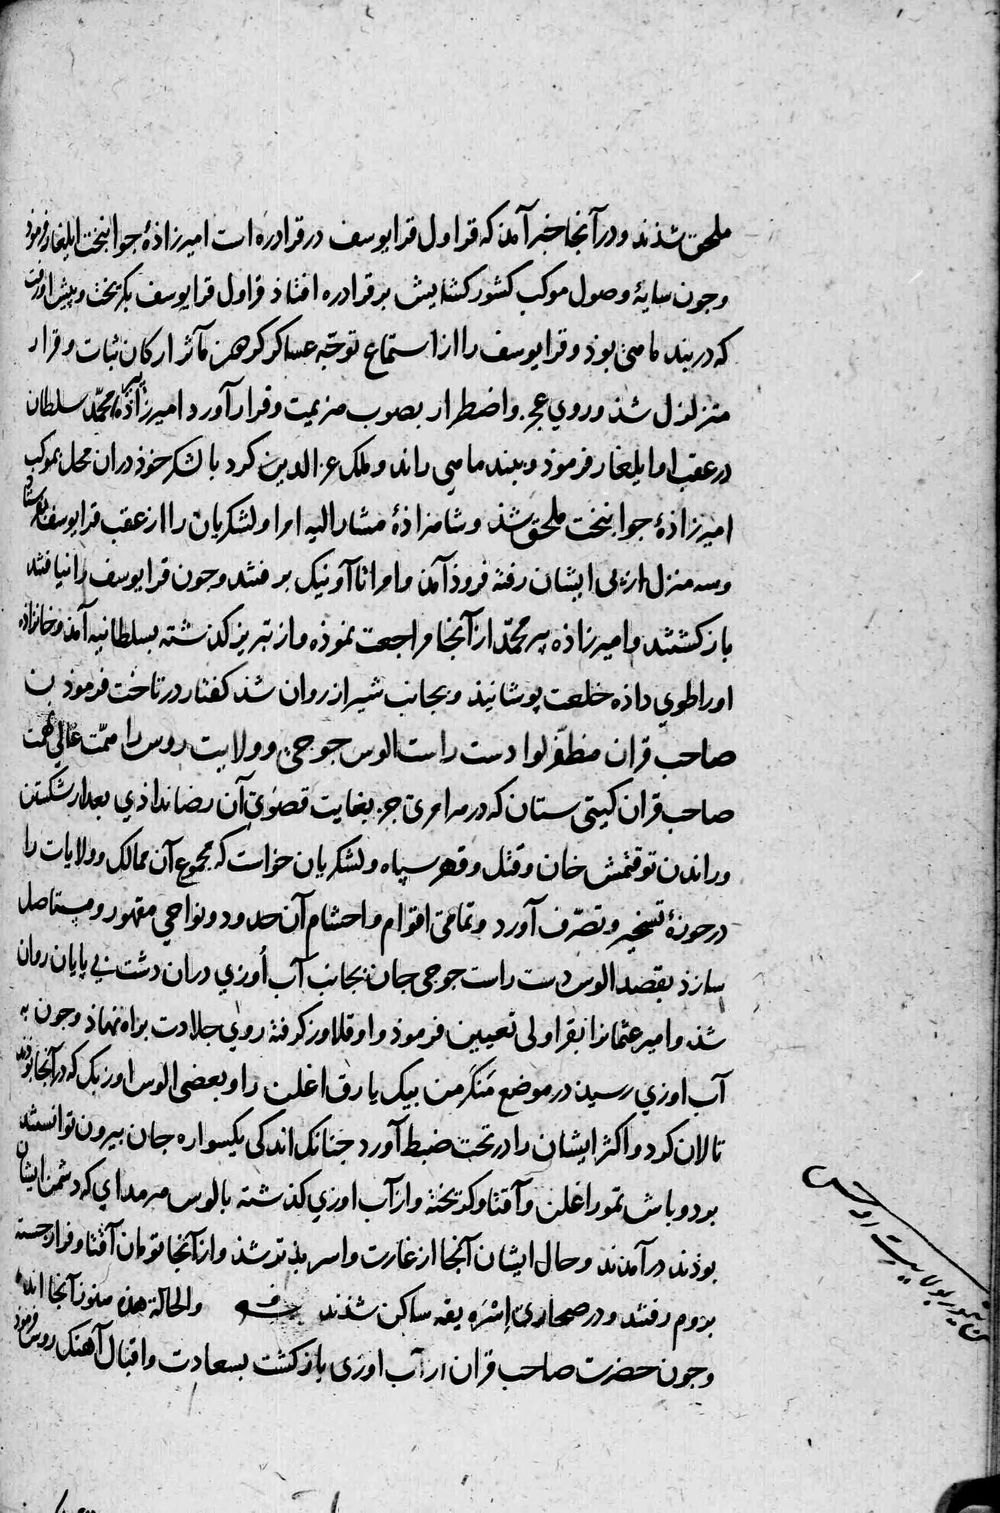 ملحق شذند ودر آنجا خبر آمذ که قراول قرا یوسف در قرادره است امیرزاذهٔ جوانبخت ایلغار فرموذ
وجون سایهٔ وصول موکب کشور کشایش بر قرادره افتاذ قراول قرا یوسف بکریخت وپیش او رفت
که در بند ماهی بوذ وقرا یوسف را از استماع توجه عساکر کردون مآثر ارکان ثبات وقرار
متزلزل شذ وروی عجز واضطرار بصوب هزیمت وفرار آورد امیرزاذه محمّد سلطان
در عقب او ایلغار فرموذ وببند ماهی راند وملک عز الدین کرد با لشکر خوذ دران محل بموکب
امیرزاذهٔ جوانبخت ملحق شذ وشاهزاذهٔ مشار الیه او را ولشکریان را از عقب قرا یوسف بفرستاد
وسه منزل از پی ایشان رفته فروذ آمذ وامرا تا آونیک برفتند وجون قرا یوسف را نیافتند
باز کشتند وامیرزاذه پیر محمّد از آنجا مراجعت نموذه واز تبریز کذشته بسلطانیه آمذ وخانزاده
او را طوی داذه خلعت پوشانیذ وبجانب شیراز روان شذ کفتار در تاخت فرموذن
صاحب قران مظفر لوا دست راست الوس جوجی وولایت روس را همّت عالی نهمت
صاحب قران کیتی ستان که در هر امری جز بغایت قصوی آن رضا نداذی بعد از شکستن
وراندن توقتمش خان وقتل وقهر سپاه ولشکریان خواست که مجموع آن ممالک وولایات را
در حوزهٔ تسخیر وتصرّف آورد وتمامی اقوام واحشام آن حدود ونواحی مقهور ومستاصل
سازذ بقصد الوس دست راست جوجی جان بجانب آب اُوزی دران دشت بی پایان روان
شذ وامیر عثمانرا بقراولی تعیین فرموذ واو قلاوز کرفته روی جلادت براه نهاذ وجون به
آب اوزی رسیذ در موضع مَنکرمن بیک یارق اغلن را وبعضی الوس اوزبک که در آنجا بوذند
تالان کرد واکثر ایشان را در تحت ضبط آورد جنانک اندکی یکسواره جان بیرون توانستند
برد وباش تمور اغلن وآقتاو کریخته واز آب اوزی کذشته بالوس هرمدای که دشمن ایشان
بوذند درآمدند وحال ایشان آنجا از غارت واسر بذتر شذ واز آنجا تومان آقتاو فرار جسته
بروم رفتند ودر صحاری إسْرَه یقه ساکن شذند والحالة هذه هنوز آنجا اند
وجون حضرت صاحب قران از آب اوزی باز کشت بسعادت واقبال آهنک روس فرموذ
بولایت اروس